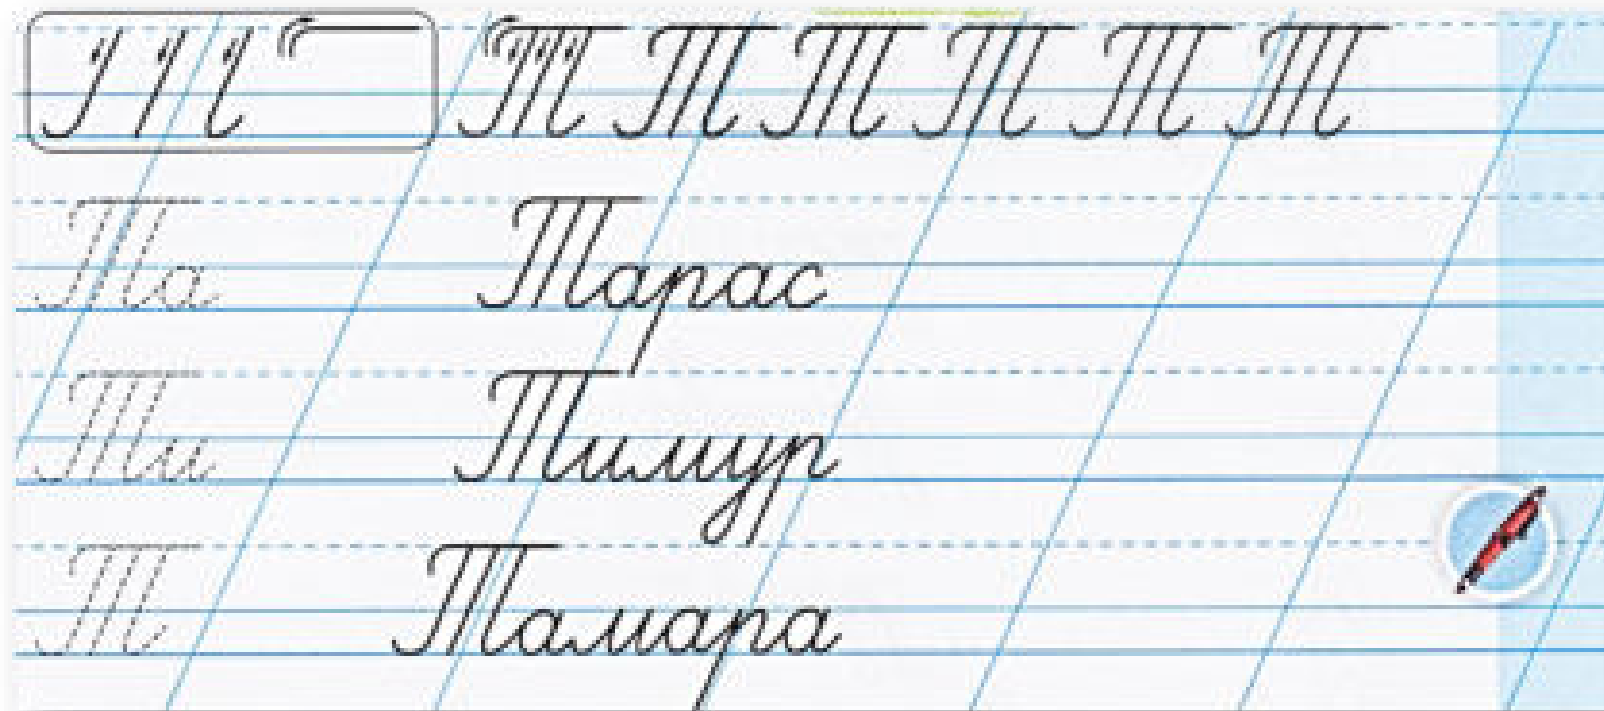 Т Т Т Т Т Т
Та Тарас
Ти Тимур
Т Тамара